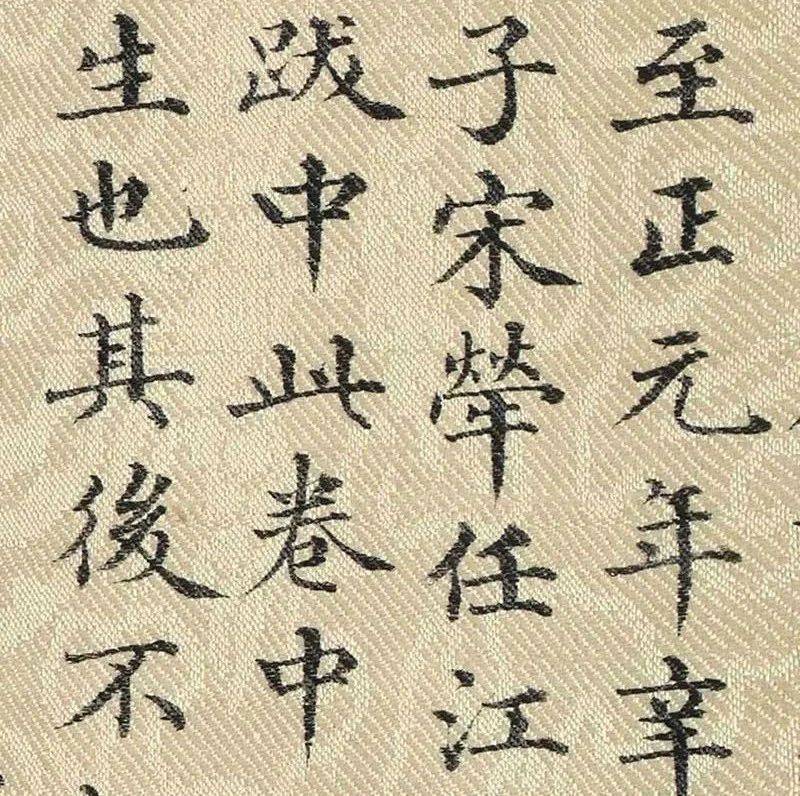 至正元年辛
子宋犖任江
跋中此卷中
生也其後不